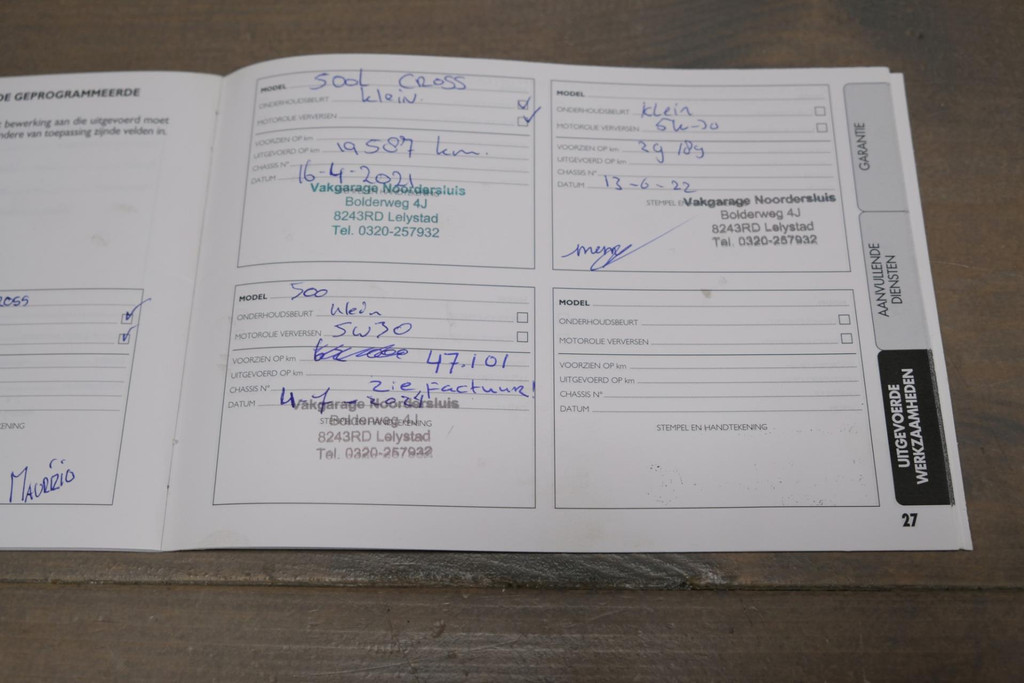 DE GEPROGRAMMEERDE
bewerking aan die uitgevoerd moet
ndere van toepassing zijnde velden in.
ROSS
ENING
MAURÉIO
MODEL 500L CROSS
ONDERHOUDSBEURT klein.
MOTOROLIE VERVERSEN
VOORZIEN OP km
UITGEVOERD OP km 19587 km.
CHASSIS N°
DATUM 16-4-2021
Vakgarage Noordersluis
Bolderweg 4J
8243RD Lelystad
Tel. 0320-257932
MODEL
ONDERHOUDSBEURT klein
MOTOROLIE VERVERSEN 5W-30
VOORZIEN OP km 29 189
UITGEVOERD OP km
CHASSIS N°
DATUM 13-6-22
STEMPEL E Vakgarage Noordersluis
Bolderweg 4J
8243RD Lelystad
Tel. 0320-257932
MODEL 500
ONDERHOUDSBEURT klein
MOTOROLIE VERVERSEN 5W30
VOORZIEN OP km 47.101
UITGEVOERD OP km
CHASSIS N° Zie Factuur!
DATUM 4-7-2024
Vakgarage Noordersluis
STEMPEL EN HANDTEKENING
Bolderweg 4J
8243RD Lelystad
Tel. 0320-257932
MODEL
ONDERHOUDSBEURT
MOTOROLIE VERVERSEN
VOORZIEN OP km
UITGEVOERD OP km
CHASSIS N°
DATUM
STEMPEL EN HANDTEKENING
GARANTIE
AANVULLENDE
DIENSTEN
UITGEVOERDE
WERKZAAMHEDEN
27